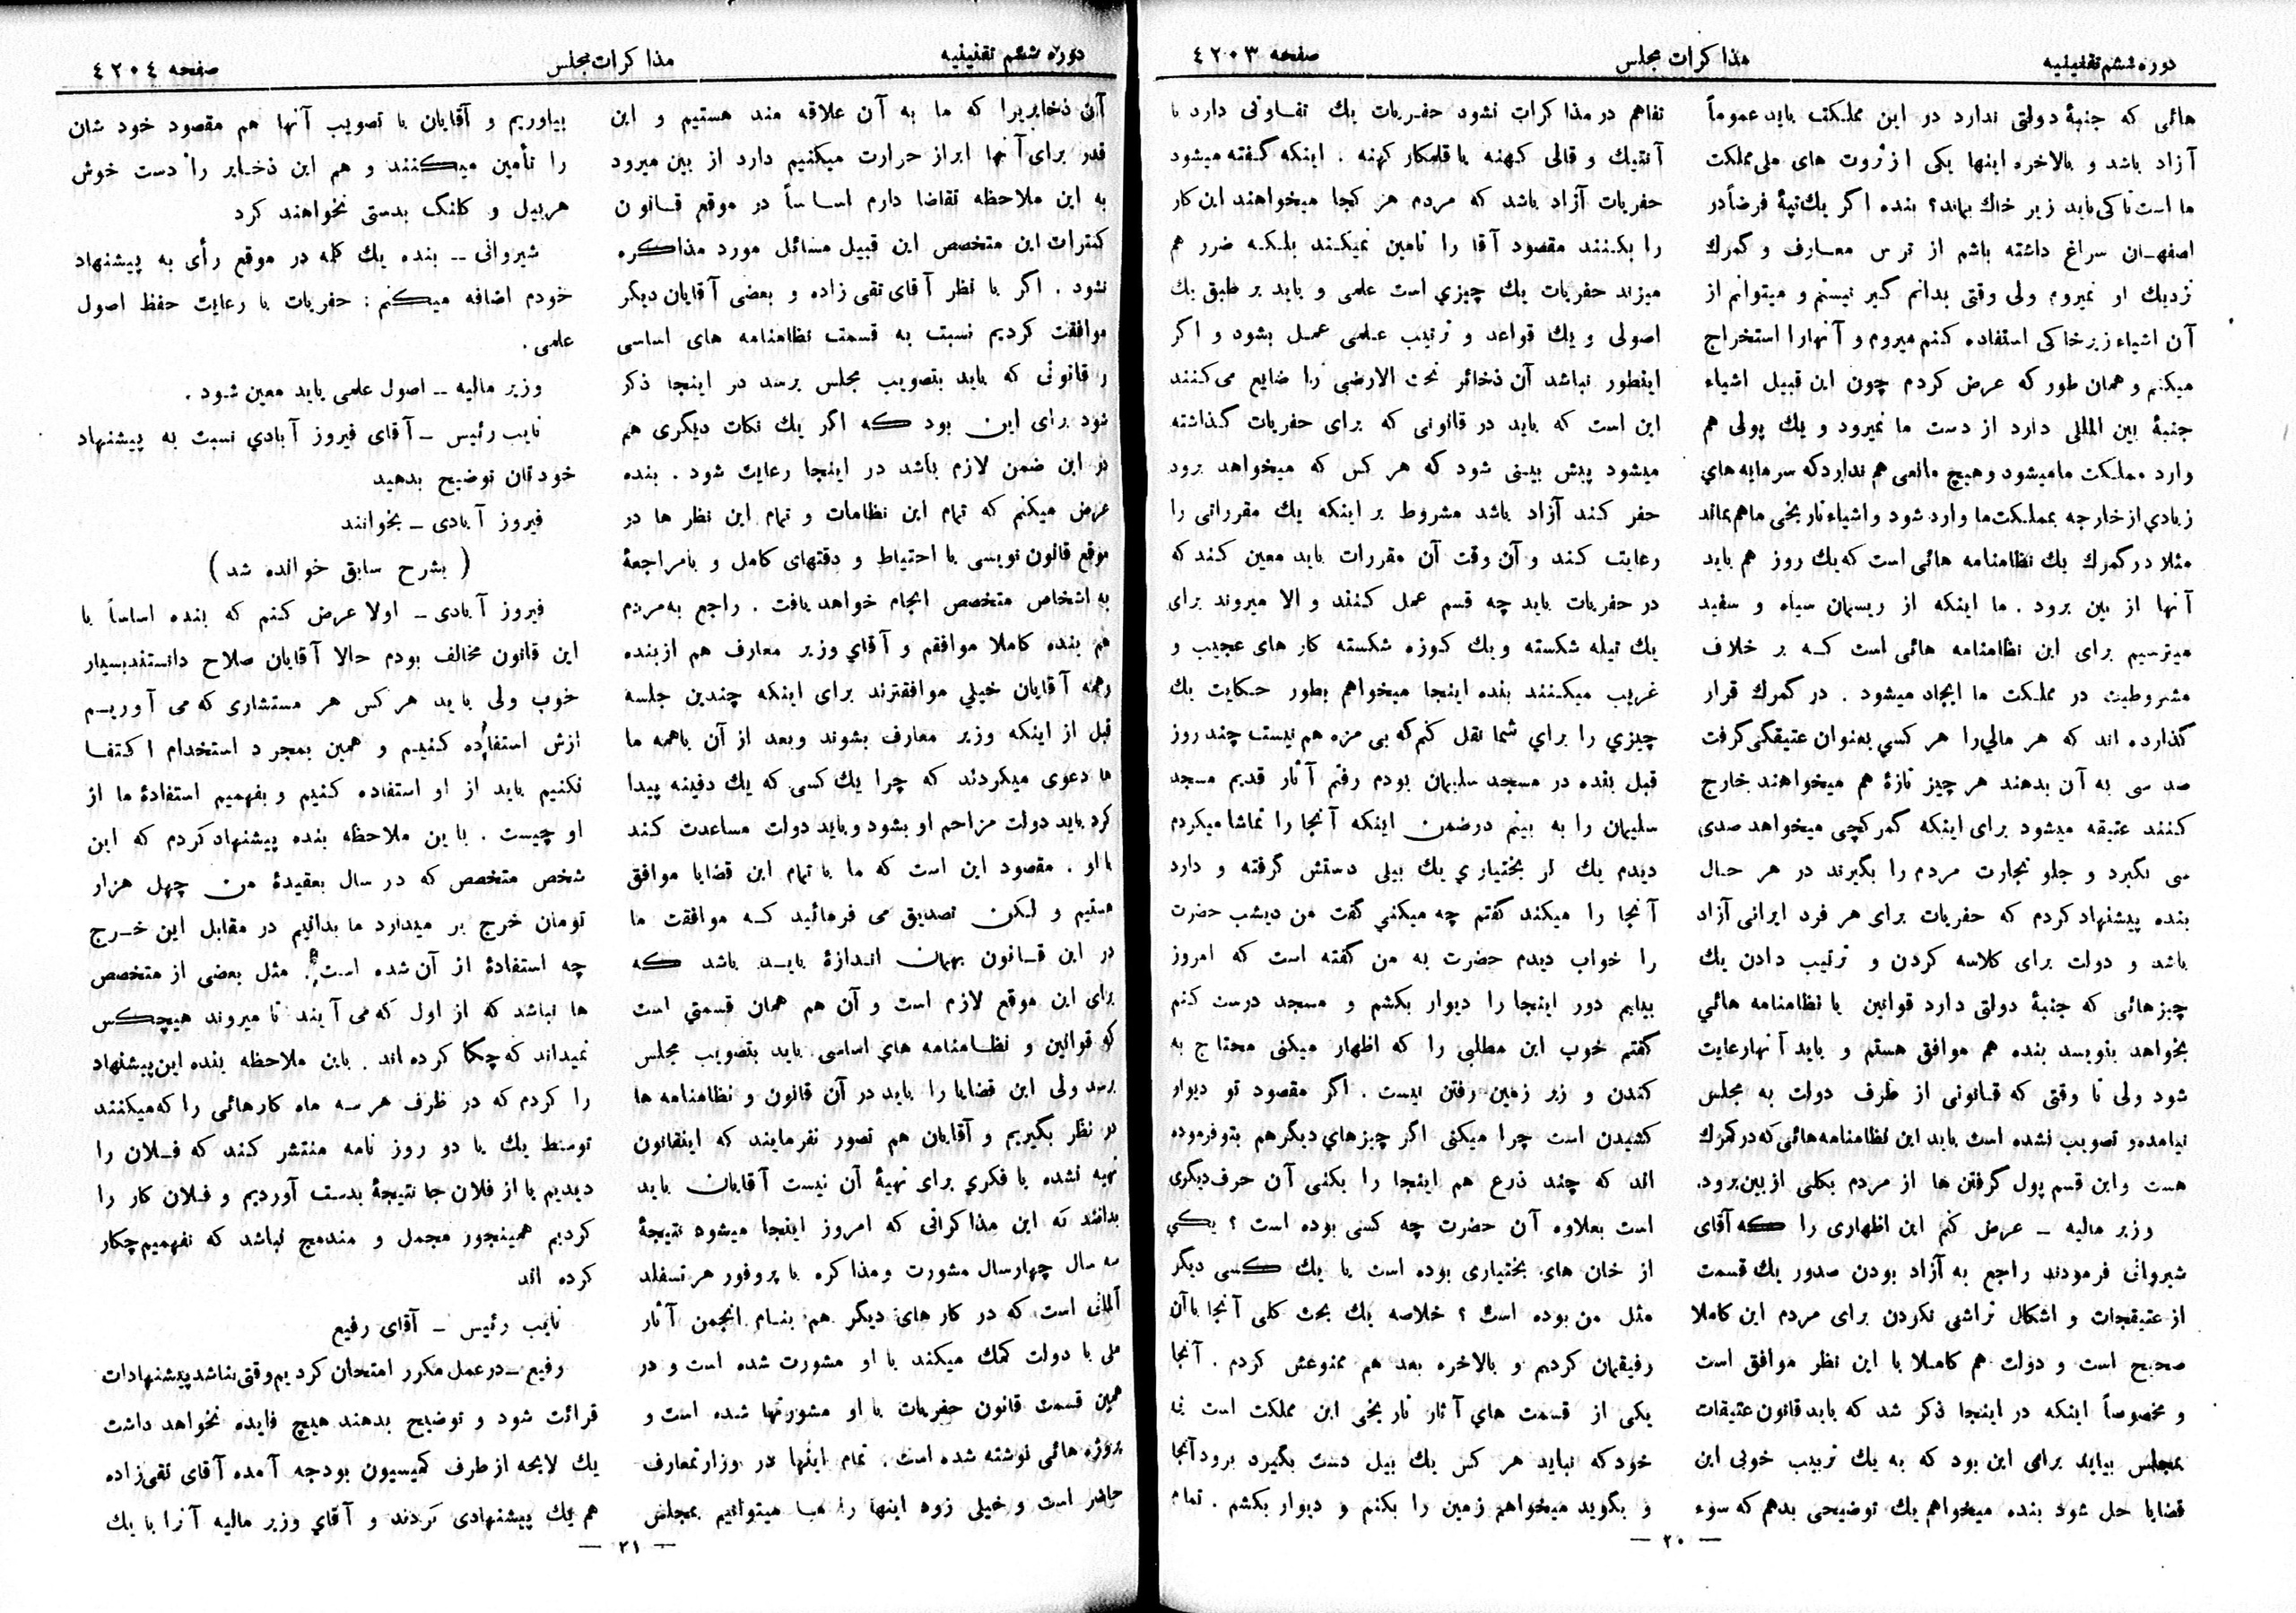 دوره ششم تقنینیه
مذاکرات مجلس
صفحه ٤٢٠٣
هائی که جنبهٔ دولتی ندارد در این مملکت باید عموماً
آزاد باشد و بالاخره اینها یکی از ثروت های ملی مملکت
ما است تا کی باید زیر خاك بماند؟ بنده اگر یك تپهٔ فرضاً در
اصفهان سراغ داشته باشم از ترس معارف و گمرك
نزدیك او نمیروم ولی وقتی بدانم گیر نیستم و میتوانم از
آن اشیاء زیرخاکی استفاده کنم میروم و آنهارا استخراج
میکنم و همان طور که عرض کردم چون این قبیل اشیاء
جنبهٔ بین المللی دارد از دست ما نمیرود و یك پولی هم
وارد مملکت ما میشود و هیچ مانعی هم ندارد که سرمایه های
زیادی از خارجه بمملکت ما وارد شود و اشیاء تاریخی ما هم بماند
مثلا در گمرك یك نظامنامه هائی است که یك روز هم باید
آنها از بین برود . ما اینکه از ریسمان سیاه و سفید
میترسیم برای این نظامنامه هائی است که بر خلاف
مشروطیت در مملکت ما ایجاد میشود . در گمرك قرار
گذارده اند که هر مالی را هر کسی بعنوان عتیقگی گرفت
صد سی به آن بدهند هر چیز تازهٔ هم میخواهند خارج
کنند عتیقه میشود برای اینکه گمرکچی میخواهد صدی
سی بگیرد و جلو تجارت مردم را بگیرند در هر حال
بنده پیشنهاد کردم که حفریات برای هر فرد ایرانی آزاد
باشد و دولت برای کلاسه کردن و ترتیب دادن یك
چیزهائی که جنبهٔ دولتی دارد قوانین یا نظامنامه هائی
بخواهد بنویسد بنده هم موافق هستم و باید آنها رعایت
شود ولی تا وقتی که قانونی از طرف دولت به مجلس
نیامده و تصویب نشده است باید این نظامنامه هائی که در گمرك
هست و این قسم پول گرفتن ها از مردم بکلی از بین برود.
وزیر مالیه ـ عرض کنم این اظهاری را که آقای
شیروانی فرمودند راجع به آزاد بودن صدور یك قسمت
از عتیقجات و اشکال تراشی نکردن برای مردم این کاملا
صحیح است و دولت هم کاملا با این نظر موافق است
و مخصوصاً اینکه در اینجا ذکر شد که باید قانون عتیقات
بمجلس بیاید برای این بود که به یك ترتیب خوبی این
قضایا حل شود بنده میخواهم یك توضیحی بدهم که سوء
تفاهم در مذاکرات نشود حفریات یك تفاوتی دارد با
آنتیك و قالی کهنه یا قلمکار کهنه . اینکه گفته میشود
حفریات آزاد باشد که مردم هر کجا میخواهند این کار
را بکنند مقصود آقا را تامین نمیکند بلکه ضرر هم
میزند حفریات یك چیزی است علمی و باید بر طبق یك
اصولی و یك قواعد و ترتیب علمی عمل بشود و اگر
اینطور نباشد آن ذخائر تحت الارضی را ضایع می کنند
این است که باید در قانونی که برای حفریات گذاشته
میشود پیش بینی شود که هر کس که میخواهد برود
حفر کند آزاد باشد مشروط بر اینکه یك مقرراتی را
رعایت کند و آن وقت آن مقررات باید معین کند که
در حفریات باید چه قسم عمل کنند و الا میروند برای
یك تیله شکسته و یك کوزه شکسته کار های عجیب و
غریب میکنند بنده اینجا میخواهم بطور حکایت یك
چیزی را برای شما نقل کنم که بی مزه هم نیست چند روز
قبل بنده در مسجد سلیمان بودم رفتم آثار قدیم مسجد
سلیمان را به بینم در ضمن اینکه آنجا را تماشا میکردم
دیدم یك لر بختیاری یك بیلی دستش گرفته و دارد
آنجا را میکند گفتم چه میکنی گفت من دیشب حضرت
را خواب دیدم حضرت به من گفته است که امروز
بیایم دور اینجا را دیوار بکشم و مسجد درست کنم
گفتم خوب این مطلبی را که اظهار میکنی محتاج به
کندن و زیر زمین رفتن نیست . اگر مقصود تو دیوار
کشیدن است چرا میکنی اگر چیزهای دیگر هم بتو فرموده
اند که چند ذرع هم اینجا را بکنی آن حرف دیگری
است بعلاوه آن حضرت چه کسی بوده است ؟ یکی
از خان های بختیاری بوده است یا یك کسی دیگر
مثل من بوده است ؟ خلاصه یك بحث کلی آنجا با آن
رفیقمان کردیم و بالاخره بعد هم ممنوعش کردم . آنجا
یکی از قسمت های آثار تاریخی این مملکت است بی
خود که نباید هر کس یك بیل دست بگیرد برود آنجا
و بگوید میخواهم زمین را بکنم و دیوار بکشم . تمام
— ٢٠ —
دوره ششم تقنینیه
مذاکرات مجلس
صفحه ٤٢٠٤
آن ذخایریرا که ما به آن علاقه مند هستیم و این
قدر برای آنها ابراز حرارت میکنیم دارد از بین میرود
به این ملاحظه تقاضا دارم اساساً در موقع قانون
کنترات این متخصص این قبیل مسائل مورد مذاکره
نشود . اگر با نظر آقای تقی زاده و بعضی آقایان دیگر
موافقت کردیم نسبت به قسمت نظامنامه های اساسی
و قانونی که باید بتصویب مجلس برسد در اینجا ذکر
شود برای این بود که اگر یك نکات دیگری هم
در این ضمن لازم باشد در اینجا رعایت شود . بنده
عرض میکنم که تمام این نظامات و تمام این نظر ها در
موقع قانون نویسی با احتیاط و دقتهای کامل و بامراجعهٔ
به اشخاص متخصص انجام خواهد یافت . راجع به مردم
هم بنده کاملا موافقم و آقای وزیر معارف هم از بنده
و همه آقایان خیلی موافقترند برای اینکه چندین جلسه
قبل از اینکه وزیر معارف بشوند و بعد از آن باهمه ما
ها دعوی میکردند که چرا یك کسی که یك دفینه پیدا
کرد باید دولت مزاحم او بشود و باید دولت مساعدت کند
با او . مقصود این است که ما با تمام این قضایا موافق
هستیم و لیکن تصدیق می فرمائید که موافقت ما
در این قانون بهمان اندازهٔ باید باشد که
برای این موقع لازم است و آن هم همان قسمتی است
که قوانین و نظامنامه های اساسی باید بتصویب مجلس
برسد ولی این قضایا را باید در آن قانون و نظامنامه ها
در نظر بگیریم و آقایان هم تصور نفرمایند که اینقانون
تهیه نشده یا فکری برای تهیهٔ آن نیست آقایان باید
بدانند که این مذاکراتی که امروز اینجا میشود نتیجهٔ
سه سال چهار سال مشورت و مذاکره با پروفور هرتسفلد
آلمانی است که در کار های دیگر هم بنام انجمن آثار
ملی با دولت کمك میکند با او مشورت شده است و در
همین قسمت قانون حفریات با او مشورتها شده است و
پروژه هائی نوشته شده است . تمام اینها در وزارتمعارف
حاضر است و خیلی زود اینها را میتوانیم بمجلس
بیاوریم و آقایان با تصویب آنها هم مقصود خود شان
را تأمین میکنند و هم این ذخایر را دست خوش
هر بیل و کلنگ بدستی نخواهند کرد
شیروانی ــ بنده یك کلمه در موقع رأی به پیشنهاد
خودم اضافه میکنم : حفریات با رعایت حفظ اصول
علمی .
وزیر مالیه ــ اصول علمی باید معین شود .
نایب رئیس ـ آقای فیروز آبادی نسبت به پیشنهاد
خودتان توضیح بدهید
فیروز آبادی ـ بخوانند
( بشرح سابق خوانده شد )
فیروز آبادی ـ اولا عرض کنم که بنده اساساً با
این قانون مخالف بودم حالا آقایان صلاح دانستند بسیار
خوب ولی باید هر کس هر مستشاری که می آوریم
ازش استفاده کنیم و همین بمجرد استخدام اکتفا
نکنیم باید از او استفاده کنیم و بفهمیم استفادهٔ ما از
او چیست . باین ملاحظه بنده پیشنهاد کردم که این
شخص متخصص که در سال بعقیدهٔ من چهل هزار
تومان خرج بر میدارد ما بدانیم در مقابل این خرج
چه استفادهٔ از آن شده است . مثل بعضی از متخصص
ها نباشد که از اول که می آیند تا میروند هیچکس
نمیداند که چکا کرده اند . باین ملاحظه بنده این پیشنهاد
را کردم که در ظرف هر سه ماه کارهائی را که میکنند
توسط یك یا دو روز نامه منتشر کند که فلان را
دیدیم یا از فلان جا نتیجهٔ بدست آوردیم و فلان کار را
کردیم همینجور مجمل و مندمج نباشد که نفهمیم چکار
کرده اند
نایب رئیس ـ آقای رفیع
رفیع ـ در عمل مکرر امتحان کردیم وقتی بنا شد پیشنهادات
قرائت شود و توضیح بدهند هیچ فایده نخواهد داشت
یك لایحه از طرف کمیسیون بودجه آمده آقای تقی زاده
هم یك پیشنهادی کردند و آقای وزیر مالیه آنرا با یك
— ٢١ —